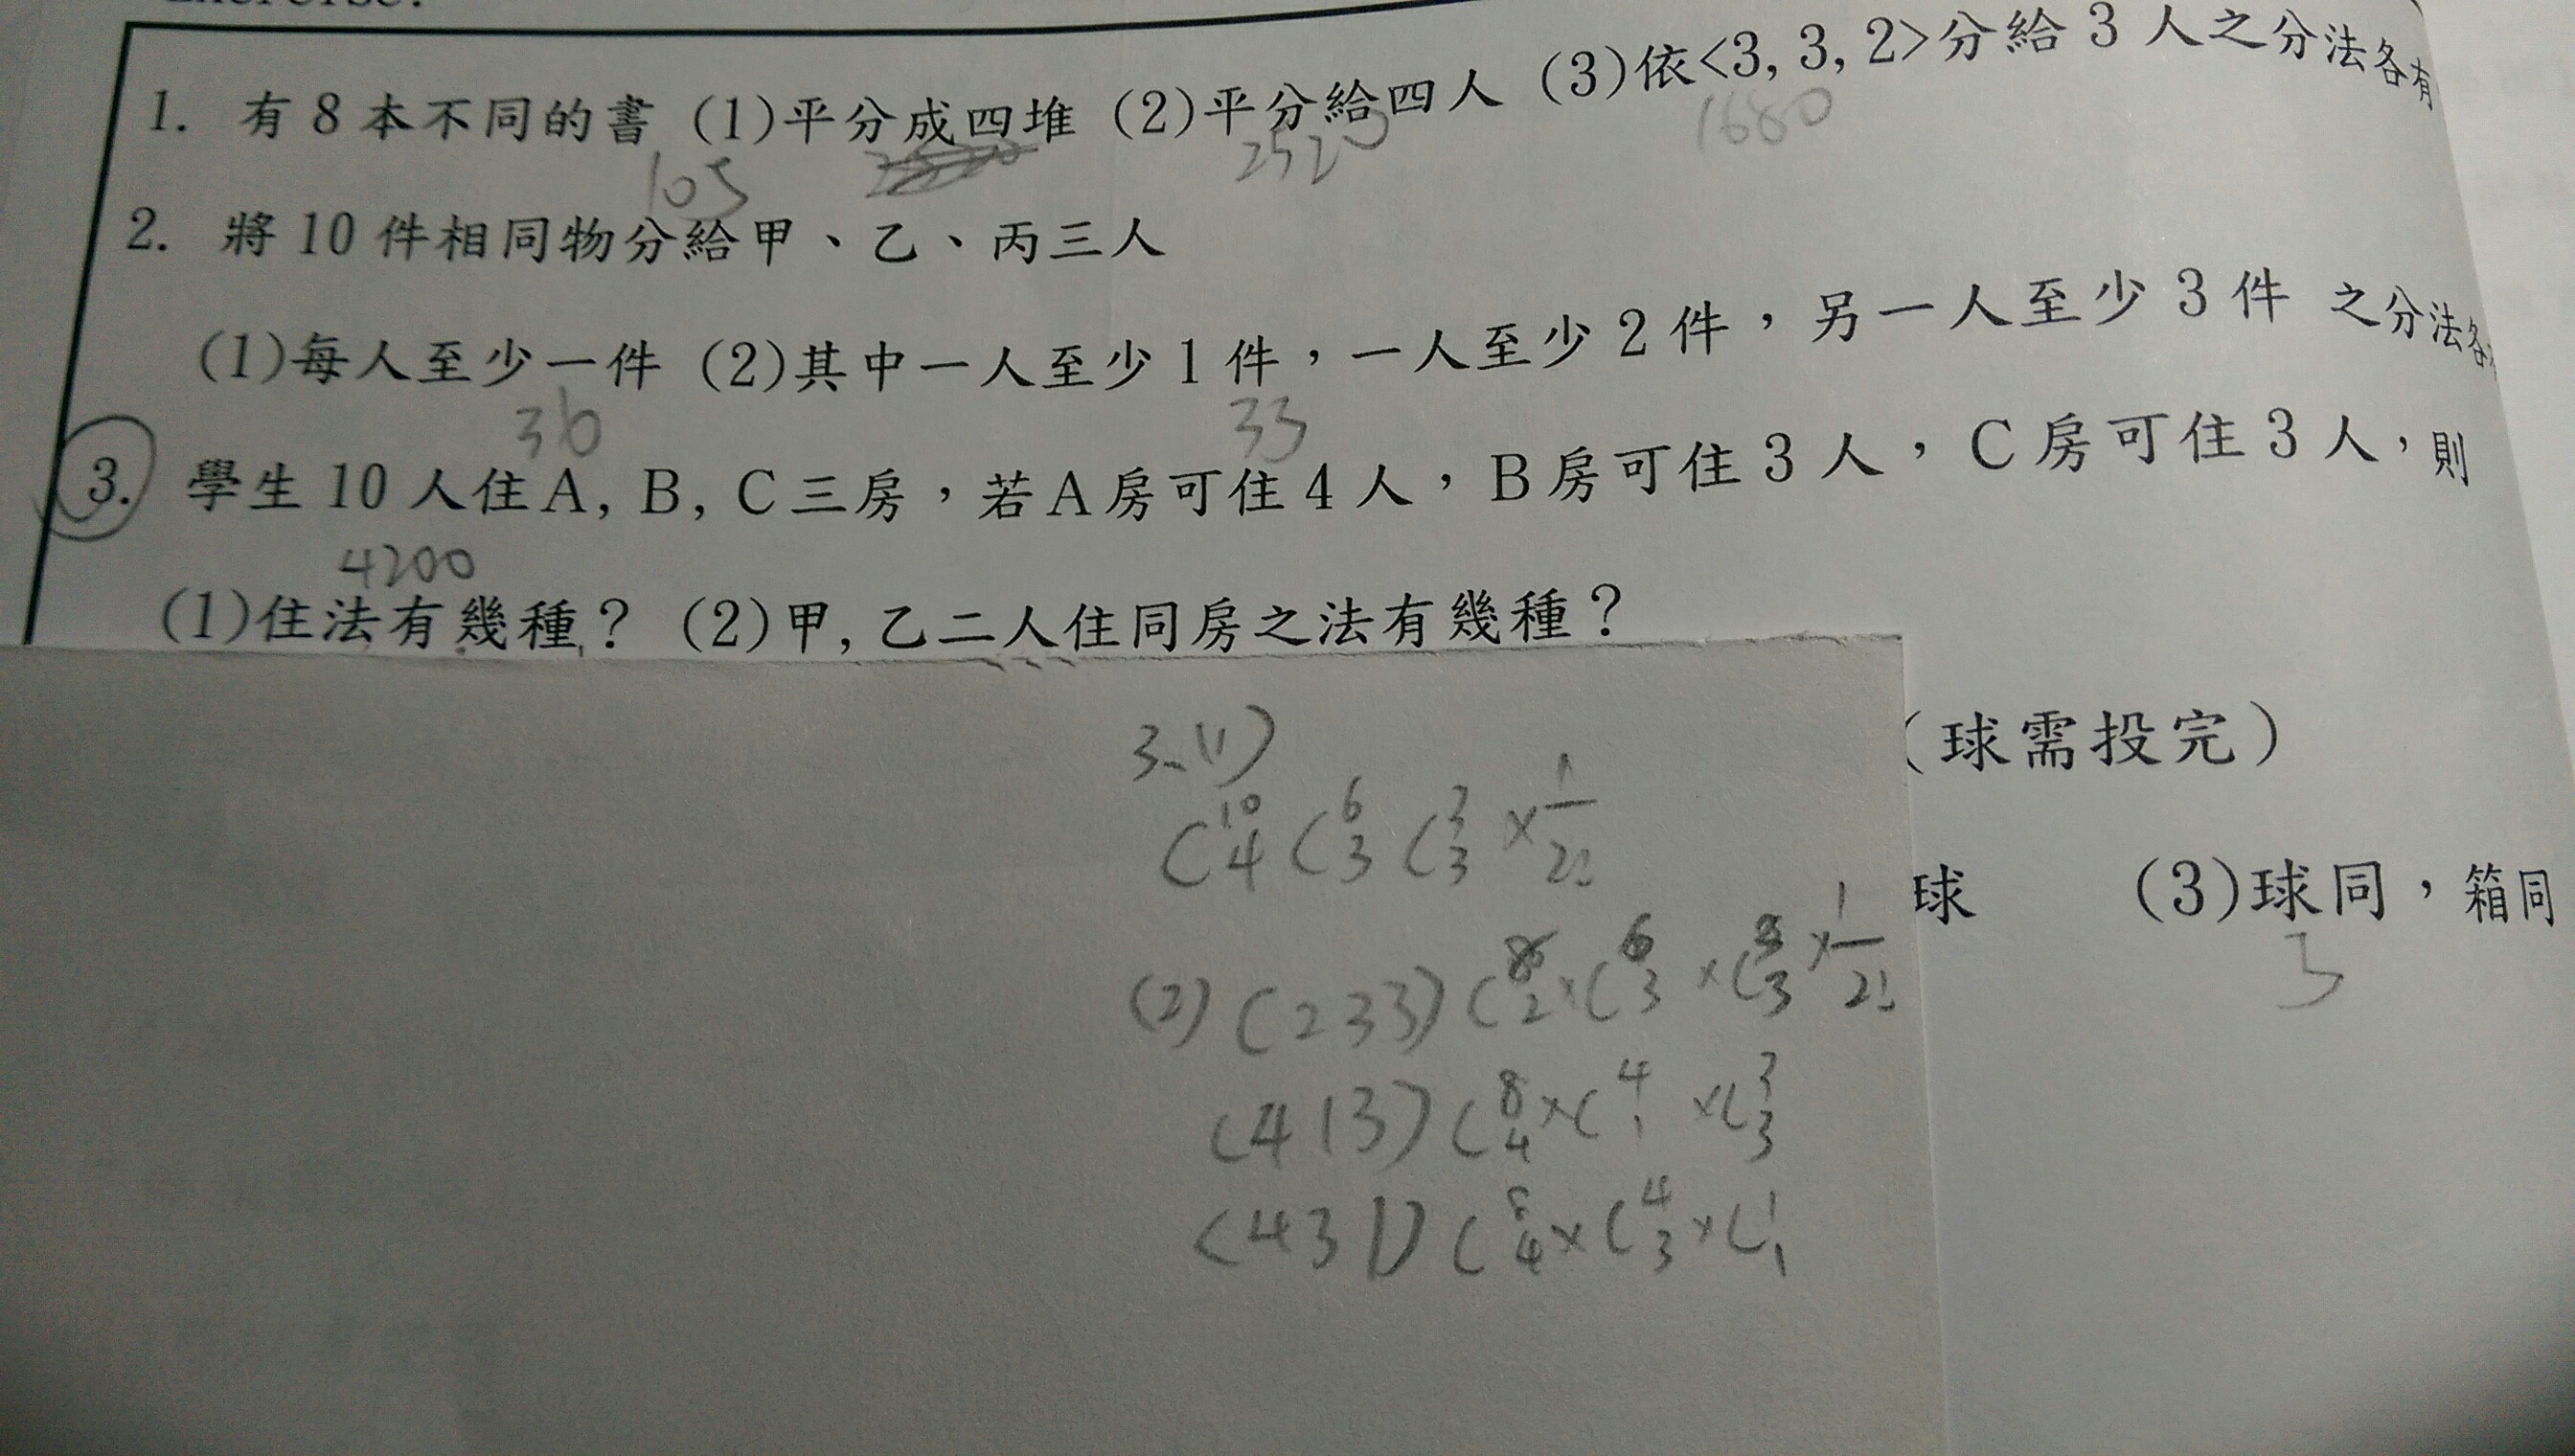 1. 有 8 本不同的書 (1)平分成四堆 (2)平分給四人 (3)依<3, 3, 2>分給 3 人之分法各有
105 2520 1680
2. 將 10 件相同物分給甲、乙、丙三人
(1)每人至少一件 (2)其中一人至少 1 件，一人至少 2 件，另一人至少 3 件 之分法各
36 33
3. 學生 10 人住 A, B, C 三房，若 A 房可住 4 人，B 房可住 3 人，C 房可住 3 人，則
4200
(1)住法有幾種？ (2)甲, 乙二人住同房之法有幾種？
3、(1)
（球需投完）
C 10 4 C 6 3 C 3 3 × 1/2!
球 (3)球同，箱同
(2) (2 3 3) C 8 2 × C 6 3 × C 3 3 × 1/2!
(4 1 3) C 8 4 × C 4 1 × C 3 3
(4 3 1) C 8 4 × C 4 3 × C 1 1